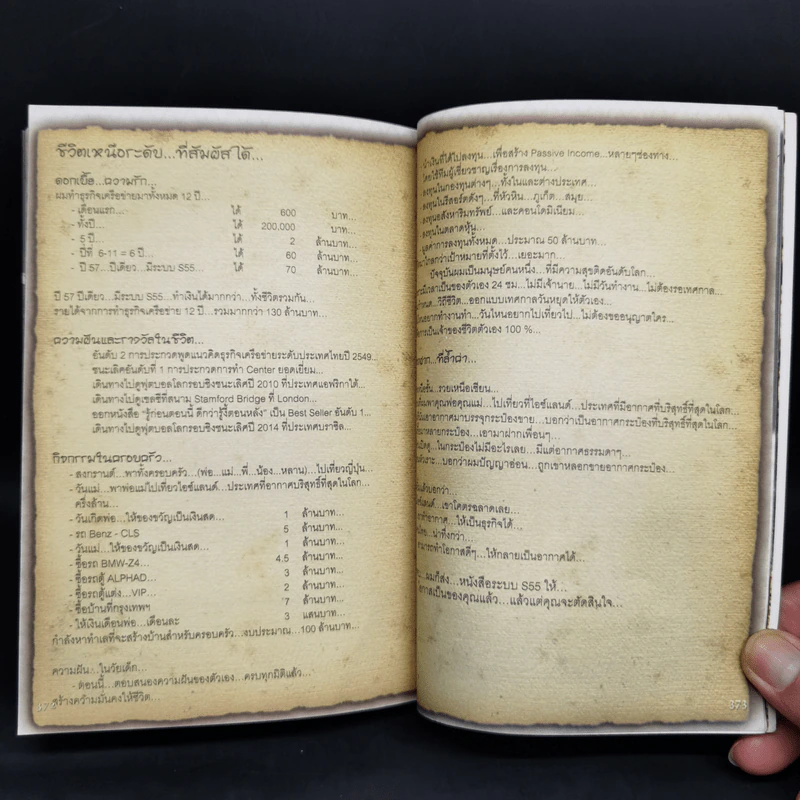 ชีวิตเหนือระดับ...ที่สัมผัสได้...
ดอกเบี้ย...ความรัก...
ผมทำธุรกิจเครือข่ายมาทั้งหมด 12 ปี...
- เดือนแรก... ได้ 600 บาท...
- ทั้งปี... ได้ 200,000 บาท...
- 5 ปี... ได้ 2 ล้านบาท...
- ปีที่ 6-11 = 6 ปี... ได้ 60 ล้านบาท...
- ปี 57...ปีเดียว...มีระบบ S55... ได้ 70 ล้านบาท...
ปี 57 ปีเดียว...มีระบบ S55...ทำเงินได้มากกว่า...ทั้งชีวิตรวมกัน...
รายได้จากการทำธุรกิจเครือข่าย 12 ปี...รวมมากกว่า 130 ล้านบาท...
ความฝันและรางวัลในชีวิต...
อันดับ 2 การประกวดพูดแนวคิดธุรกิจเครือข่ายระดับประเทศไทยปี 2549...
ชนะเลิศอันดับที่ 1 การประกวดการทำ Center ยอดเยี่ยม...
เดินทางไปดูฟุตบอลโลกรอบชิงชนะเลิศปี 2010 ที่ประเทศแอฟริกาใต้...
เดินทางไปดูเชลซีที่สนาม Stamford Bridge ที่ London...
ออกหนังสือ "รู้ก่อนตอนนี้ ดีกว่ารู้งี้ตอนหลัง" เป็น Best Seller อันดับ 1...
เดินทางไปดูฟุตบอลโลกรอบชิงชนะเลิศปี 2014 ที่ประเทศบราซิล...
กิจกรรมในครอบครัว...
- สงกรานต์...พาทั้งครอบครัว...(พ่อ...แม่...พี่...น้อง...หลาน)...ไปเที่ยวญี่ปุ่น...
- วันแม่...พาพ่อแม่ไปเที่ยวไอซ์แลนด์...ประเทศที่อากาศบริสุทธิ์ที่สุดในโลก...
ครึ่งล้าน...
- วันเกิดพ่อ...ให้ของขวัญเป็นเงินสด... 1 ล้านบาท...
- รถ Benz - CLS 5 ล้านบาท...
- วันแม่...ให้ของขวัญเป็นเงินสด... 1 ล้านบาท...
- ซื้อรถ BMW-Z4... 4.5 ล้านบาท...
- ซื้อรถตู้ ALPHAD... 3 ล้านบาท...
- ซื้อรถตู้แต่ง...VIP... 2 ล้านบาท...
- ซื้อบ้านที่กรุงเทพฯ 7 ล้านบาท...
- ให้เงินเดือนพ่อ...เดือนละ 3 แสนบาท...
กำลังหาทำเลที่จะสร้างบ้านสำหรับครอบครัว...งบประมาณ...100 ล้านบาท...
ความฝัน...ในวัยเด็ก...
- ตอนนี้...ตอบสนองความฝันของตัวเอง...ครบทุกมิติแล้ว...
สร้างความมั่นคงให้ชีวิต...
นำเงินที่ได้ไปลงทุน...เพื่อสร้าง Passive Income...หลายๆช่องทาง...
โดยใช้ทีมผู้เชี่ยวชาญเรื่องการลงทุน...
ลงทุนในกองทุนต่างๆ...ทั้งในและต่างประเทศ...
ลงทุนในรีสอร์ตดังๆ...ที่หัวหิน...ภูเก็ต...สมุย...
ลงทุนอสังหาริมทรัพย์...และคอนโดมิเนียม...
ลงทุนในตลาดหุ้น...
มูลค่าการลงทุนทั้งหมด...ประมาณ 50 ล้านบาท...
มาไกลกว่าเป้าหมายที่ตั้งไว้...เยอะมาก...
ปัจจุบันผมเป็นมนุษย์คนหนึ่ง...ที่มีความสุขติดอันดับโลก...
มีเวลาเป็นของตัวเอง 24 ชม...ไม่มีเจ้านาย...ไม่มีวันทำงาน...ไม่ต้องรอเทศกาล...
วิถีชีวิต...ออกแบบเทศกาลวันหยุดให้ตัวเอง...
ไหนอยากทำงานทำ...วันไหนอยากไปเที่ยวไป...ไม่ต้องขออนุญาตใคร...
การเป็นเจ้าของชีวิตตัวเอง 100 %...
...ที่ล้ำค่า...
รวยเหนือเซียน...
พาคุณพ่อคุณแม่...ไปเที่ยวที่ไอซ์แลนด์...ประเทศที่มีอากาศที่บริสุทธิ์ที่สุดในโลก...
เอาอากาศมาบรรจุกระป๋องขาย...บอกว่าเป็นอากาศกระป๋องที่บริสุทธิ์ที่สุดในโลก...
มาหลายกระป๋อง...เอามาฝากเพื่อนๆ...
ในกระป๋องไม่มีอะไรเลย...มีแต่อากาศธรรมดาๆ...
บอกว่าผมปัญญาอ่อน...ถูกเขาหลอกขายอากาศกระป๋อง...
แล้วบอกว่า...
เขาโคตรฉลาดเลย...
ทำอากาศ...ให้เป็นธุรกิจได้...
น่าทึ่งกว่า...
สามารถทำโอกาสดีๆ...ให้กลายเป็นอากาศได้...
...ผมก็ส่ง...หนังสือระบบ S55 ให้...
โอกาสเป็นของคุณแล้ว...แล้วแต่คุณจะตัดสินใจ...
373